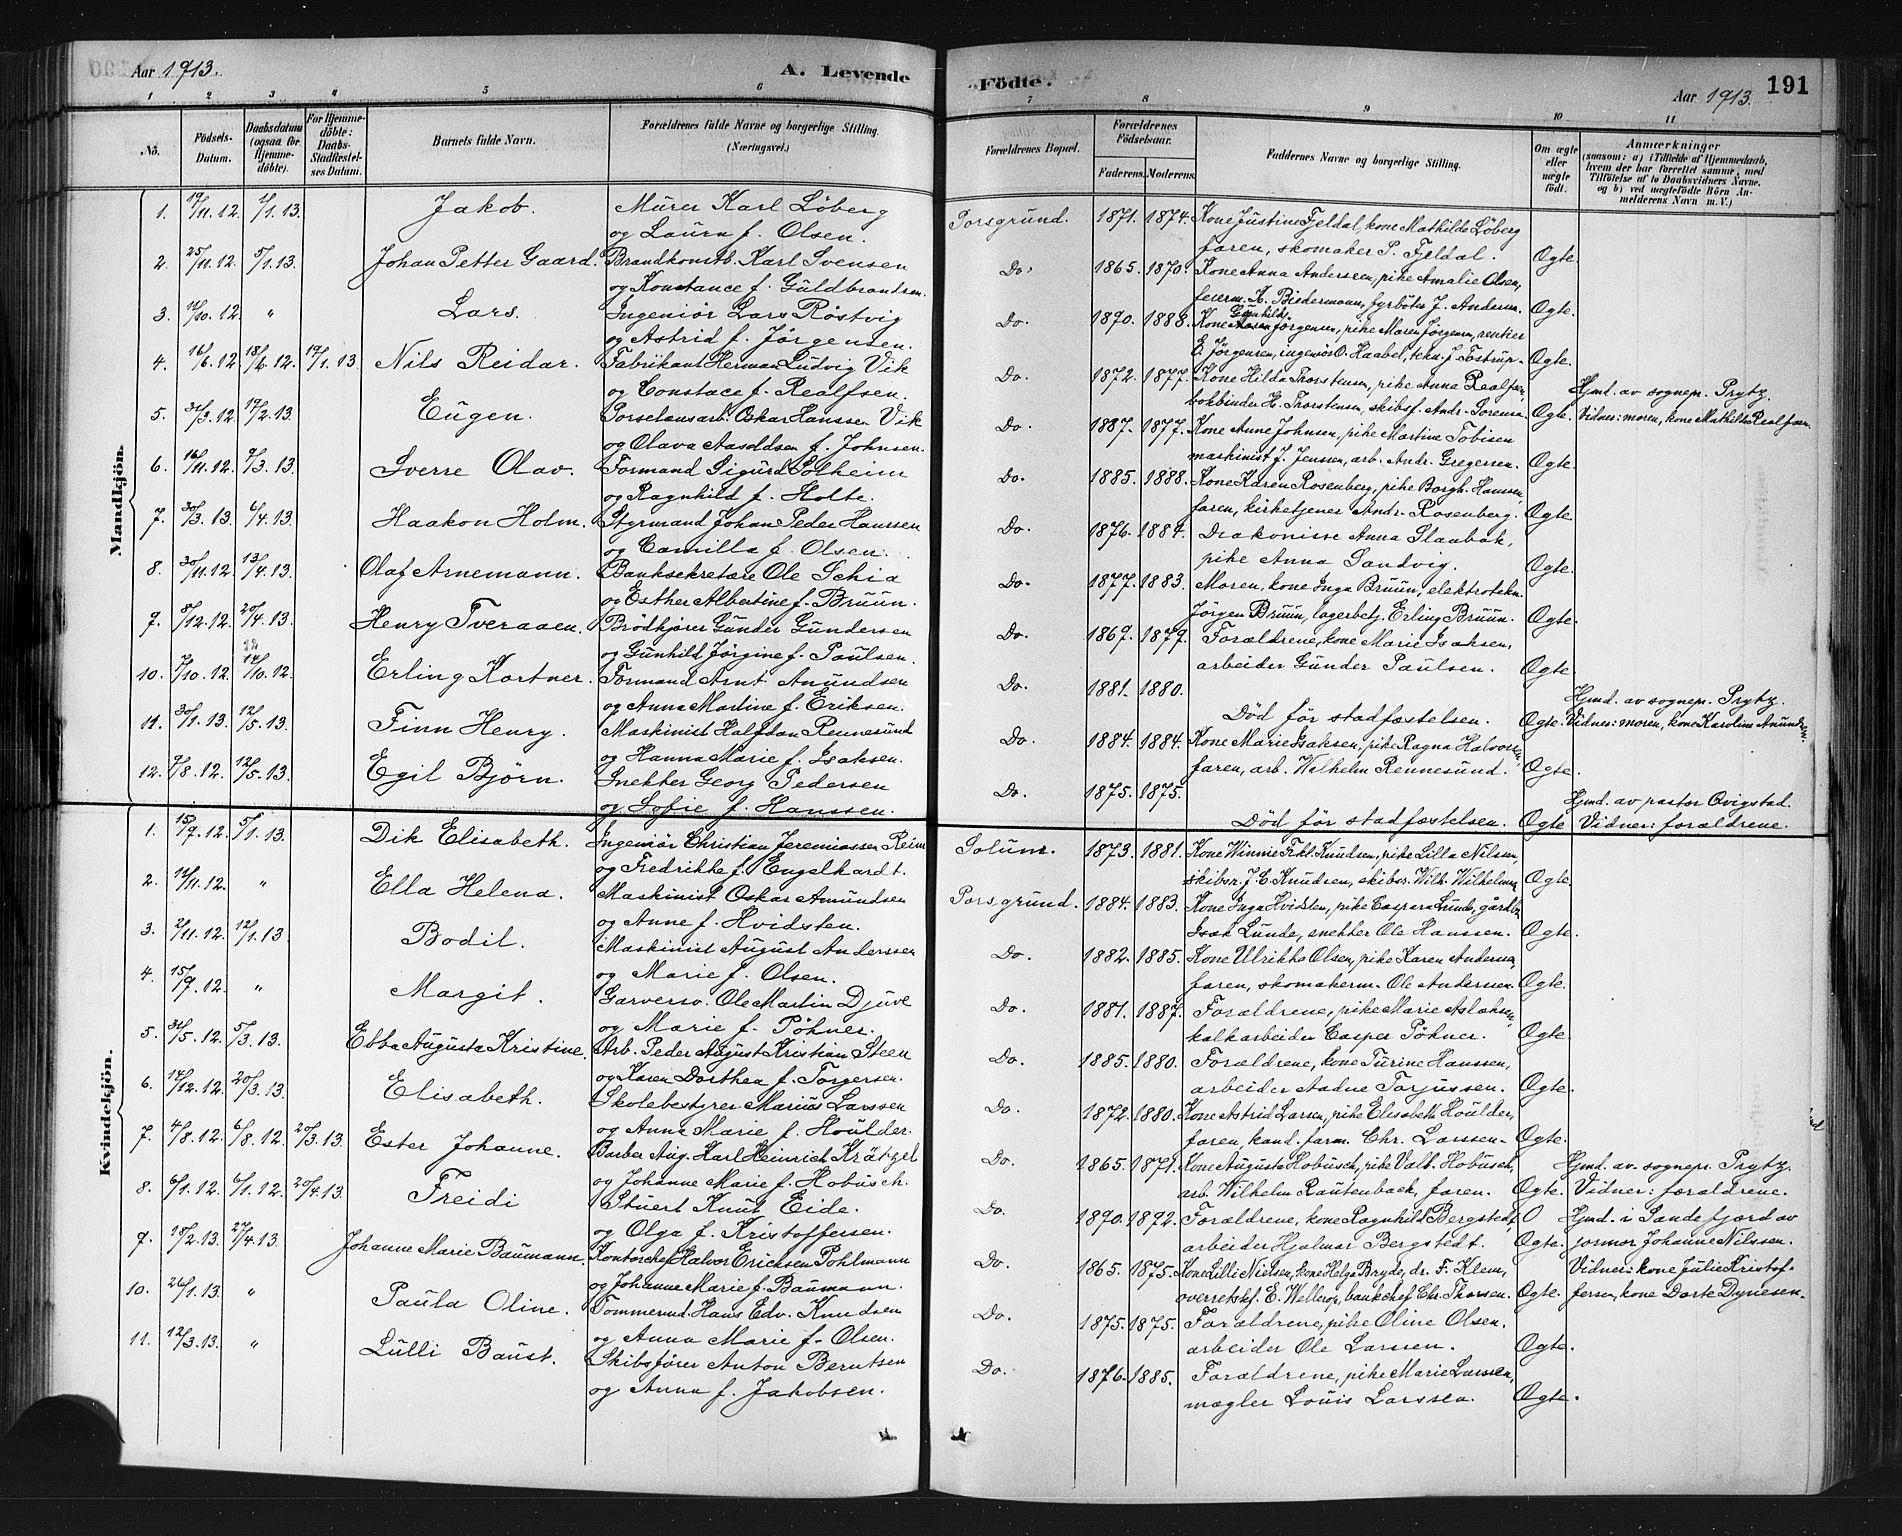 Aar 1913.
A. Levende
1 2 3 4 5 6
Nô.
Födsels-Datum.
Daabsdatum (ogsaa for Hjemmedöbte).
For Hjemmedöbte: Daabs-Stadfæstelses Datum.
Barnets fulde Navn.
Forældrenes fulde Navne og borgerlige Stilling. (Næringsvei.)
Mandkjön.
1. 19/11.12. 1/1.13. Jakob. Murer Karl Löberg
og Laura f. Olsen.
2. 25/11.12. 5/1.13. Johan Petter Gaard. Brandkonstb. Karl Svensen
og Konstance f. Guldbrandsen.
3. 12/10.12. " Lars. Ingeniör Lars Röstvig
og Astrid f. Jörgensen.
4. 16/6.12 18/6.12. 19/1.13 Nils Reidar. Fabrikant Herman Ludvig Vik
og Constace f. Realfsen.
5. 31/3.12 19/2.13. Eugen. Porselansarb. Oskar Hanssen Vik
og Olava Aasoldsen f. Johnsen.
6. 16/11.12. 9/3.13. Sverre Olav. Formand Sigurd Solheim
og Ragnhild f. Holte.
7. 30/3.13. 6/4.13. Haakon Holm. Styrmand Johan Peder Hanssen
og Camilla f. Olsen.
8. 30/11.12. 13/4.13. Olaf Arnemann. Banksekretære Ole Schia
og Esther Albertine f. Bruun.
9. 8/12.12. 20/4.13. Henry Tveraaen. Brödkjörer Gunder Gundersen
og Gunhild Jörgine f. Paulsen.
10. 7/10.12. 14/10.12. Erling Kortner. Formand Arnt Amundsen
og Anna Martine f. Eriksen.
11. 30/1.13. 12/5.13. Finn Henry. Maskinist Halfdan Rennesund
og Hanna Marie f. Isaksen.
12. 9/8.12. 12/5.13. Egil Björn. Snekker Georg Pedersen
og Sofie f. Hanssen.
Kvindekjön.
1. 15/9.12. 5/1.13. Dik Elisabeth. Ingeniör Christian Jeremiassen Reim
og Fredrikke f. Engelhardt.
2. 12/11.12. " Ella Helena. Maskinist Oskar Amundsen
og Anne f. Hvidsten.
3. 2/11.12. 12/1.13. Bodil. Maskinist August Anderssen
og Marie f. Olsen.
4. 15/9.12. " Margit. Garversv. Ole Martin Djuve
og Marie f. Pöhner.
5. 31/5.12. 5/3.13. Ebba Augusta Kristine. Arb. Peder August Kristian Steen
og Karen Dorthea f. Torgersen.
6. 14/12.12. 20/3.13. Elisabeth. Skolebestyrer Marius Larssen
og Anna Marie f. Houlder.
7. 4/8.12. 6/8.12. 20/3.13. Ester Johanne. Barber Aug. Karl Heinrich Krätgel
og Johanne Marie f. Hobusch.
8. 6/1.12. 6/1.12. 20/4.13. Freidi Stuert Knut Eide.
og Olga f. Kristoffersen.
9. 18/2.13. 27/4.13. Johanne Marie Baumann. Kontorchef Halvor Ericksen Pohlmann
og Johanne Marie f. Baumann.
10. 26/1.13. " Paula Oline. Tommermd. Hans Edv. Knudsen
og Anna Marie f. Olsen.
11. 12/3.13. " Lulli Baust. Skibsförer Anton Berntsen
og Anna f. Jakobsen.
Födte.
191
Aar 1913.
7 8 9 10 11
Forældrenes Bopæl.
Forældrenes Födselsaar.
Faderens. Moderens.
Faddernes Navne og borgerlige Stilling.
Om ægte eller uægte födt.
Anmærkninger
(saasom: a) i Tilfælde af Hjemmedaab,
hvem der har forrettet samme, med
Tilföielse af to Daabsvidners Navne.
og b) ved uægtefödte Börn Anmelderens Navn m. V.)
Porsgrund. 1871. 1874. Kone Justine Fjeldal, kone Mathilde Löberg
faren, skomaker P. Fjeldal. Ægte.
Do. 1865. 1870. Kone Anna Anderssen, pike Amalie Olsen,
feierm. K. Biedermann, fyrböter J. Andersen. Ægte.
Gunhild
Do. 1890. 1888. Kone Jörgensen, pike Maren Jörgensen, rentier
E. Jörgensen, ingeniör O. Haabel, tekn. J. Tostrup. Ægte.
Do. 1872. 1877. Kone Hilda Thorstensen, pike Anna Realfsen
bokbinder H. Thorstensen, skibsf. Andr. Sorensen Ægte. Hjmd. av sognepr. Prytz.
Vidner: moren, kone Mathilde Realfsen.
Do. 1887. 1877. Kone Anne Johnsen, pike Martine Tobisen
maskinist J. Jenssen, arb. Andr. Gregersen. Ægte.
Do. 1885. 1888. Kone Karen Rosenberg, pike Borgh. Hansen
faren, kirketjener Andr. Rosenberg. Ægte
Do. 1876. 1884. Diakonisse Anna Slaabak,
pike Anna Sandvig. Ægte.
Do. 1877. 1883. Moren, kone Inga Bruun, elektrotekn.
Jörgen Bruun, lagerbetj. Erling Bruun. Ægte.
Do. 1869. 1879. Forældrene, kone Marie Isaksen,
arbeider Gunder Paulsen. Ægte
Do. 1881. 1880. Hjmd. av sognepr. Prytz.
Död för stadfæstelsen. Ægte. Vidner: moren, kone Karoline Amundsen.
Do. 1884. 1884. Kone Marie Isaksen, pike Ragna Halvorsen,
faren, arb. Wilhelm Rennesund. Ægte.
Do. 1875. 1875. Hjmd. av pastor Qvigstad.
Död för stadfæstelsen. Ægte Vidner: forældrene.
Solum. 1873. 1881. Kone Winnie Frkl. Knudsen, pike Lilla Nilsen,
skibsr. J. C. Knudsen, skibsr. Wilh. Wilhelmsen Ægte.
Porsgrund. 1884. 1883. Kone Inga Hvidsten, pike Caspara Lunde, gårdbr.
Isak Lunde, snekker Ole Hanssen. Ægte.
Do. 1882. 1885. Kone Ulrikke Olsen, pike Karen Andersen,
faren, skomakerm. Ole Anderssen. Ægte.
Do. 1881. 1887. Forældrene, pike Marie Aslaksen,
kalkarbeider Casper Pöhner. Ægte.
Do. 1885. 1880. Forældrene, kone Turine Hanssen,
arbeider Aadne Torjussen. Ægte.
Do. 1872. 1880. Kone Astrid Larsen, pike Elisabeth Houlder,
faren, kand. farm. Chr. Larssen. Ægte.
Do. 1865. 1871. Kone Augusta Hobusch, pike Valb. Hobusch, Hjmd. av. sognepr. Prytz.
arb. Wilhelm Rautenbach, faren. Ægte. Vidner: forældrene.
Do. 1890. 1892. Forældrene, kone Ragnhild Bergstedt, Hjmd. i Sandefjord av
arbeider Hjalmar Bergstedt. Ægte. jormor Johanne Nilssen.
Do. 1865. 1875. Kone Lilli Nielsen, kone Helga Bryde, dr. F. Klem, Vidner: kone Julie Kristof-
overretskf. E. Wellerop, bankchef Chr. Thorsen. Ægte. fersen, kone Dorte Dynesen.
Do. 1875. 1875. Forældrene, pike Oline Olsen.
arbeider Ole Larssen. Ægte.
Do. 1876. 1885. Forældrene, pike Marie Larssen,
mægler Louis Larssen. Ægte.